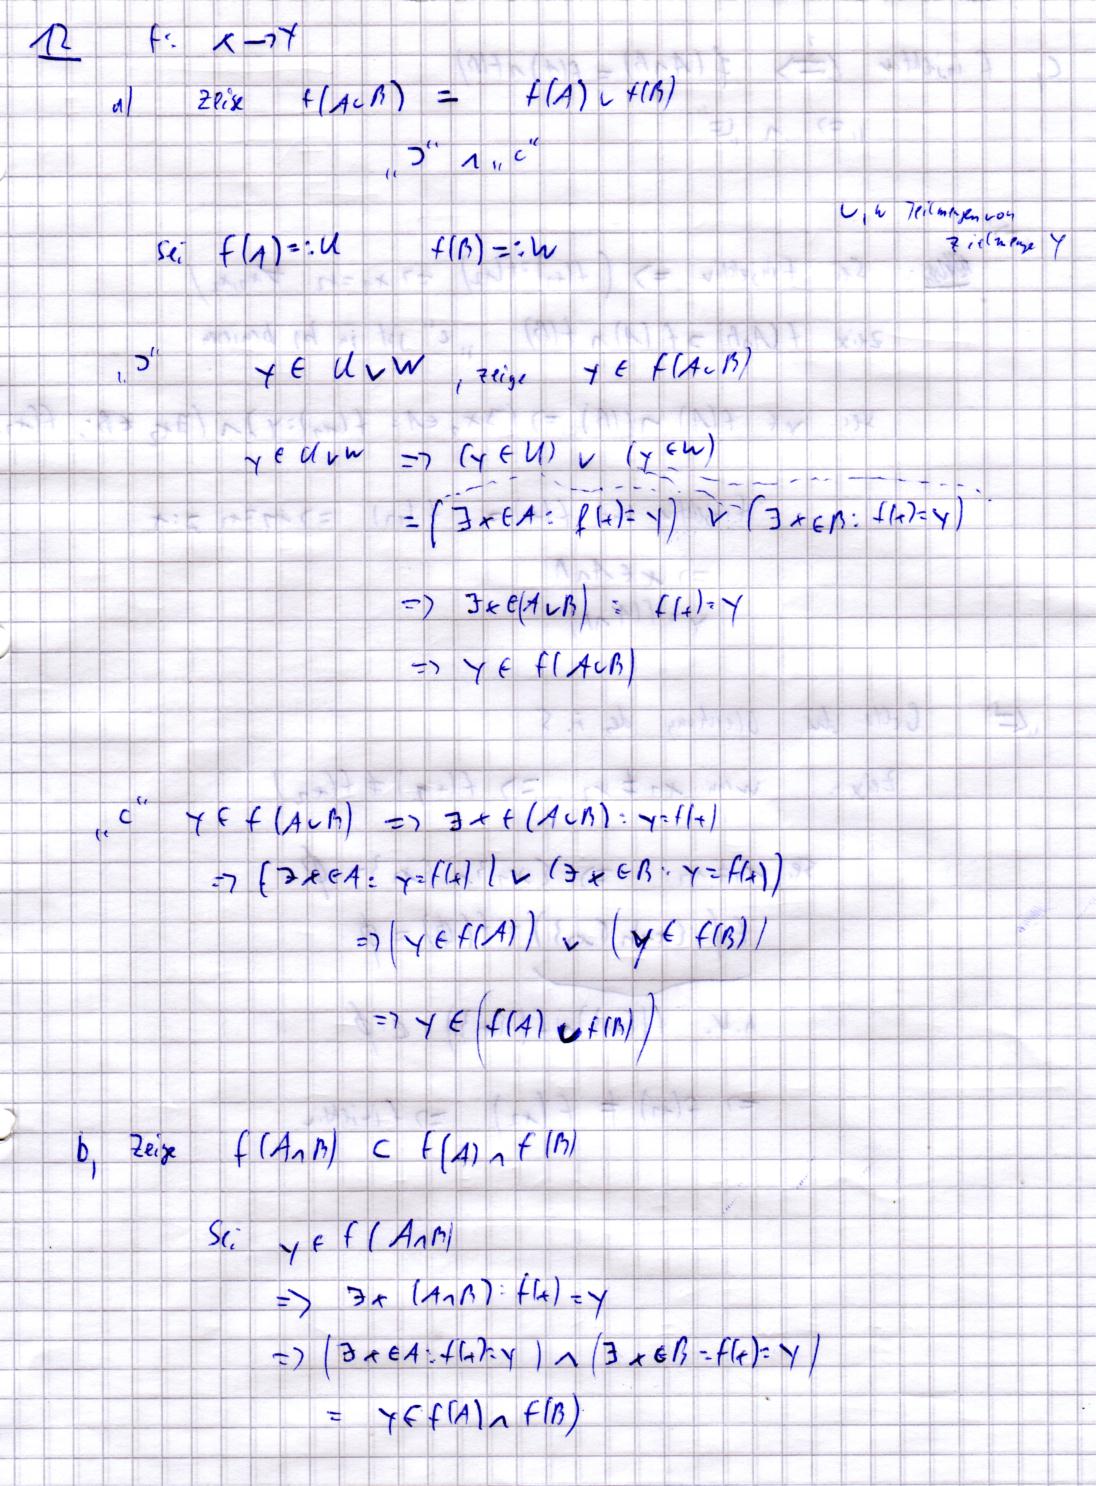 12 f: X → Y
a) Zeige f(A∪B) = f(A) ∪ f(B)
„⊃“ ∧ „⊂“
U, W Teilmengen von
Zielmenge Y
Sei f(A) =: U f(B) =: W
„⊃“ y ∈ U ∪ W, zeige y ∈ f(A∪B)
y ∈ U ∪ W => (y ∈ U) ∨ (y ∈ W)
= (∃ x ∈ A : f(x) = y) ∨ (∃ x ∈ B : f(x) = y)
=> ∃ x ∈ (A ∪ B) : f(x) = y
=> y ∈ f(A∪B)
„⊂“ y ∈ f(A∪B) => ∃ x ∈ (A∪B) : y = f(x)
=> (∃ x ∈ A : y = f(x)) ∨ (∃ x ∈ B : y = f(x))
=> (y ∈ f(A)) ∨ (y ∈ f(B))
=> y ∈ (f(A) ∪ f(B))
b, Zeige f(A∩B) ⊂ f(A) ∩ f(B)
Sei y ∈ f(A∩B)
=> ∃ x (A∩B) : f(x) = y
=> (∃ x ∈ A : f(x) = y) ∧ (∃ x ∈ B = f(x) = y)
= y ∈ f(A) ∩ f(B)